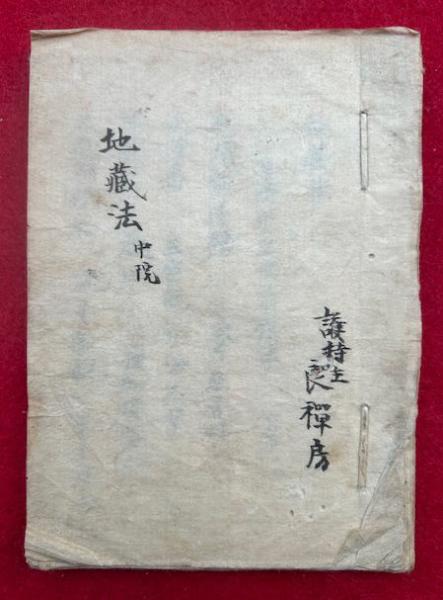 護持主
良禪房
地藏法 中院